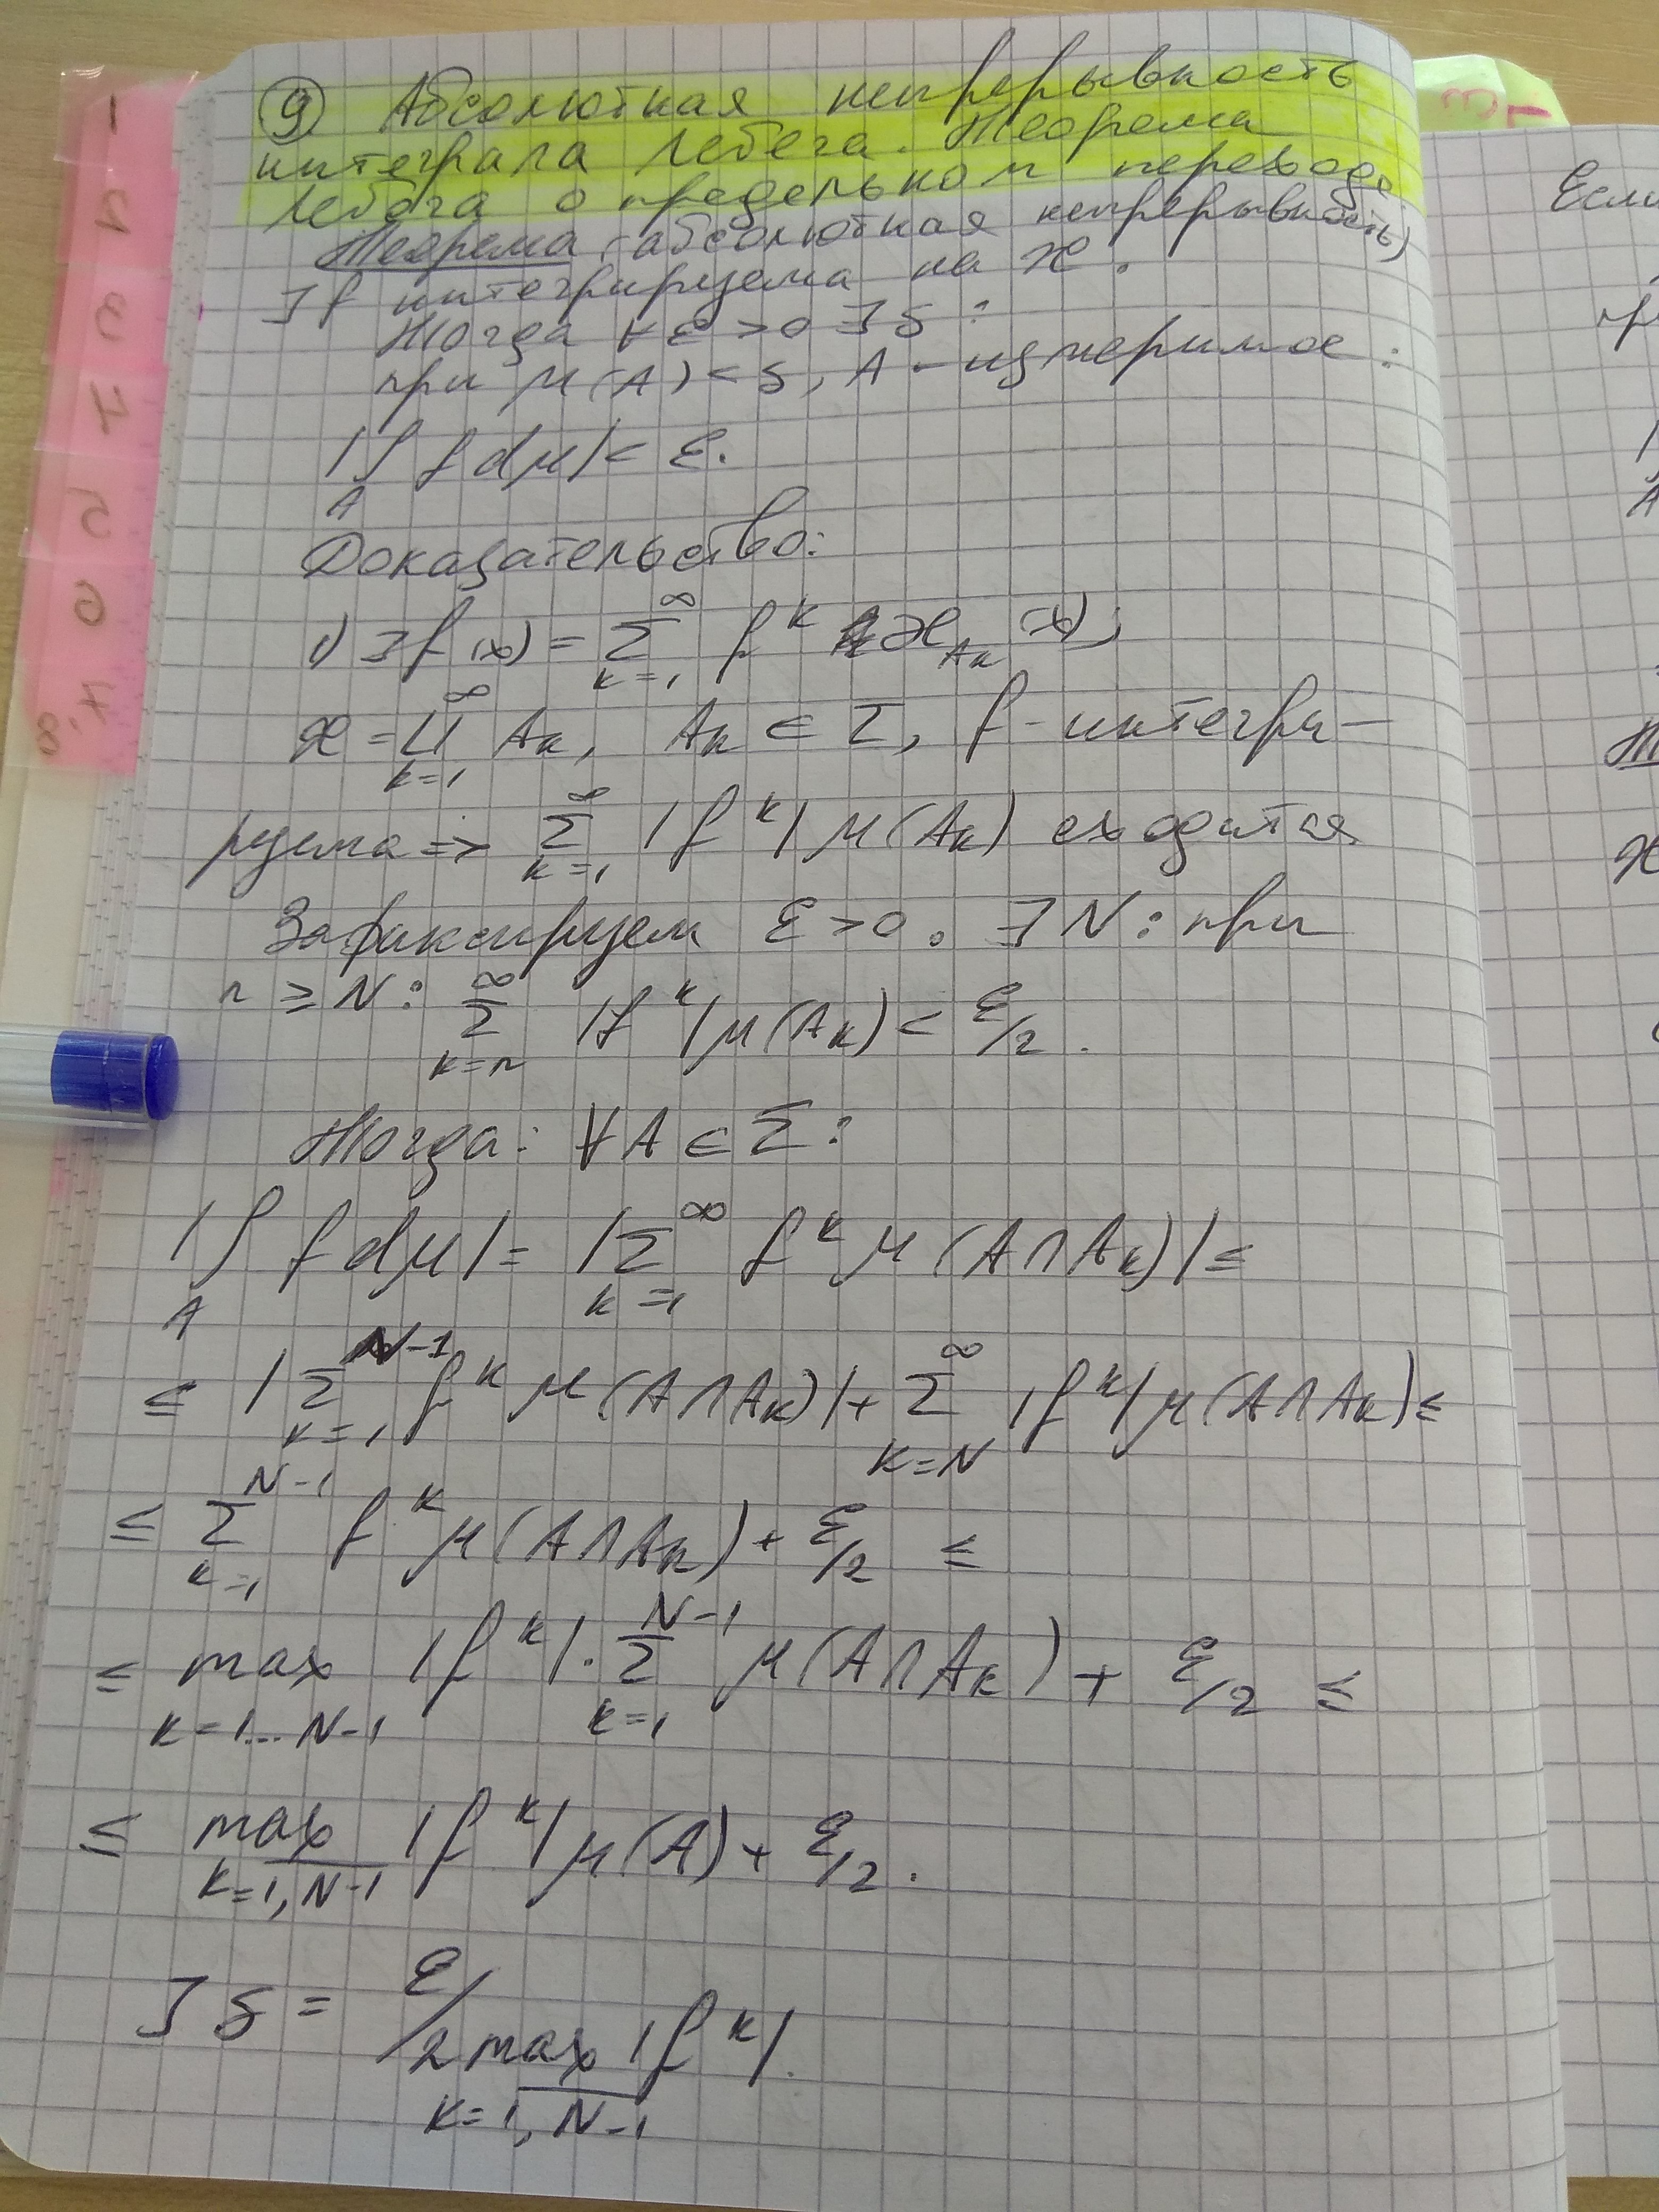 ⑨ Абсолютная непрерывность
интеграла Лебега. Теорема
Лебега о предельном переходе
Теорема (абсолютная непрерывность)
∃ f интегрируема на 𝒳.
Тогда ∀ ε > 0 ∃ δ :
при μ(A) < δ, A - измеримое :
|∫_A f dμ| < ε.
Доказательство:
1) ∃ f(x) = Σ_{k=1}^∞ f^k æ_{A_k}(x);
𝒳 = ⨆_{k=1}^∞ A_k, A_k ∈ Σ, f - интегри-
руема => Σ_{k=1}^∞ |f^k| μ(A_k) сходится
Зафиксируем ε > 0. ∃ N : при
n ≥ N : Σ_{k=n}^∞ |f^k| μ(A_k) < ε/2.
Тогда: ∀ A ∈ Σ :
|∫_A f dμ| = |Σ_{k=1}^∞ f^k μ(A∩A_k)| ≤
≤ |Σ_{k=1}^{N-1} f^k μ(A∩A_k)| + Σ_{k=N}^∞ |f^k| μ(A∩A_k) ≤
≤ Σ_{k=1}^{N-1} f^k μ(A∩A_k) + ε/2 ≤
≤ max_{k=1...N-1} |f^k| · Σ_{k=1}^{N-1} μ(A∩A_k) + ε/2 ≤
≤ max_{k=\overline{1,N-1}} |f^k| μ(A) + ε/2.
∃ δ = ε/2 max_{k=\overline{1,N-1}} |f^k|.
Если